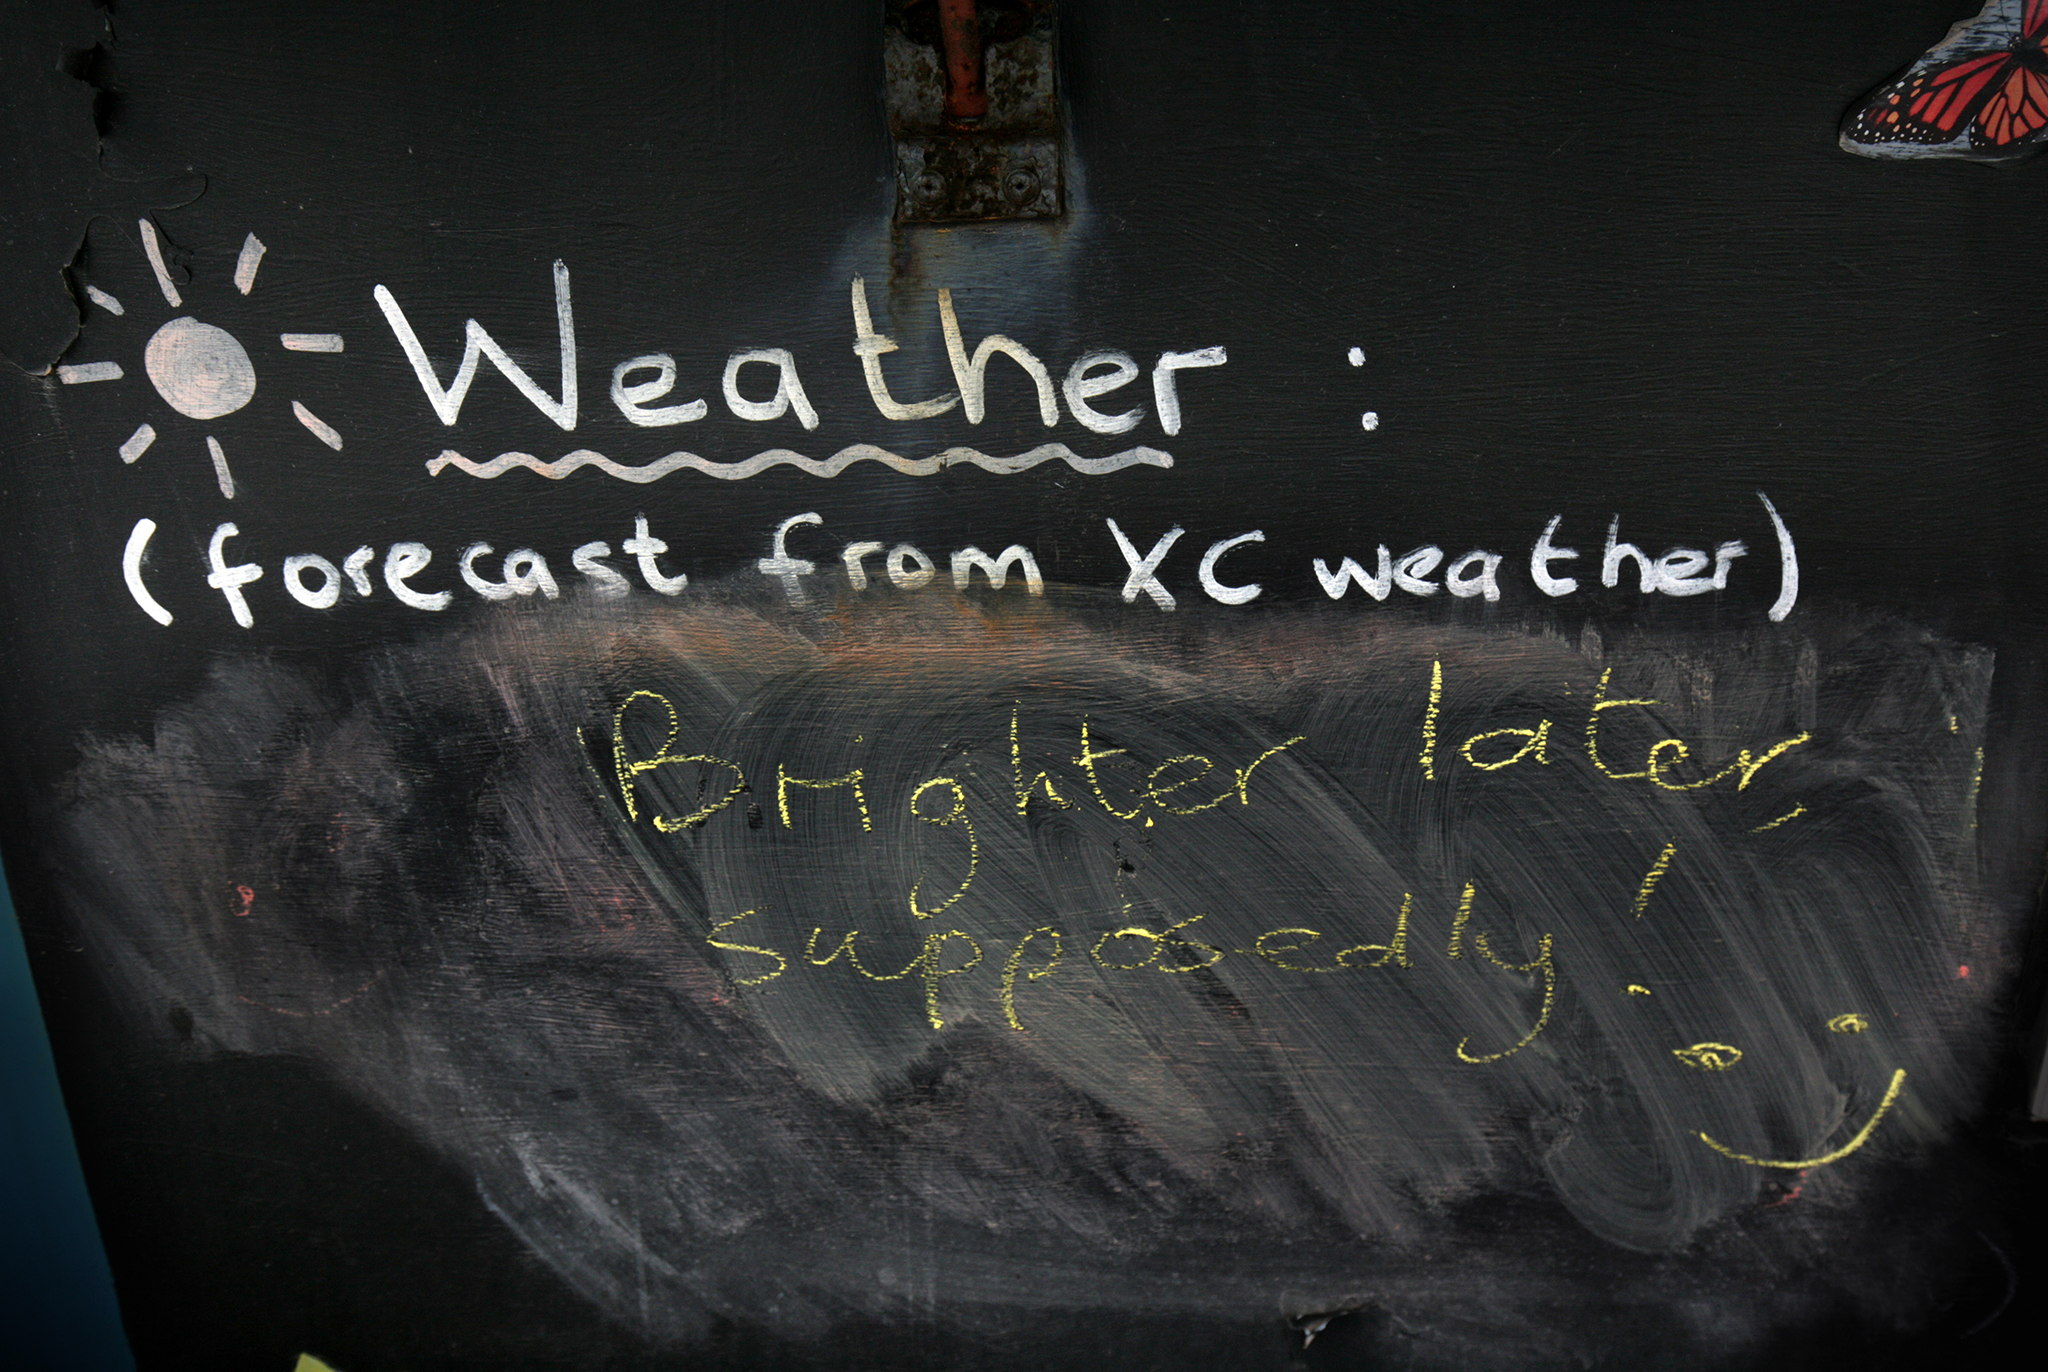 Weather :
(forecast from XC weather)
Brighter later,
supposedly!